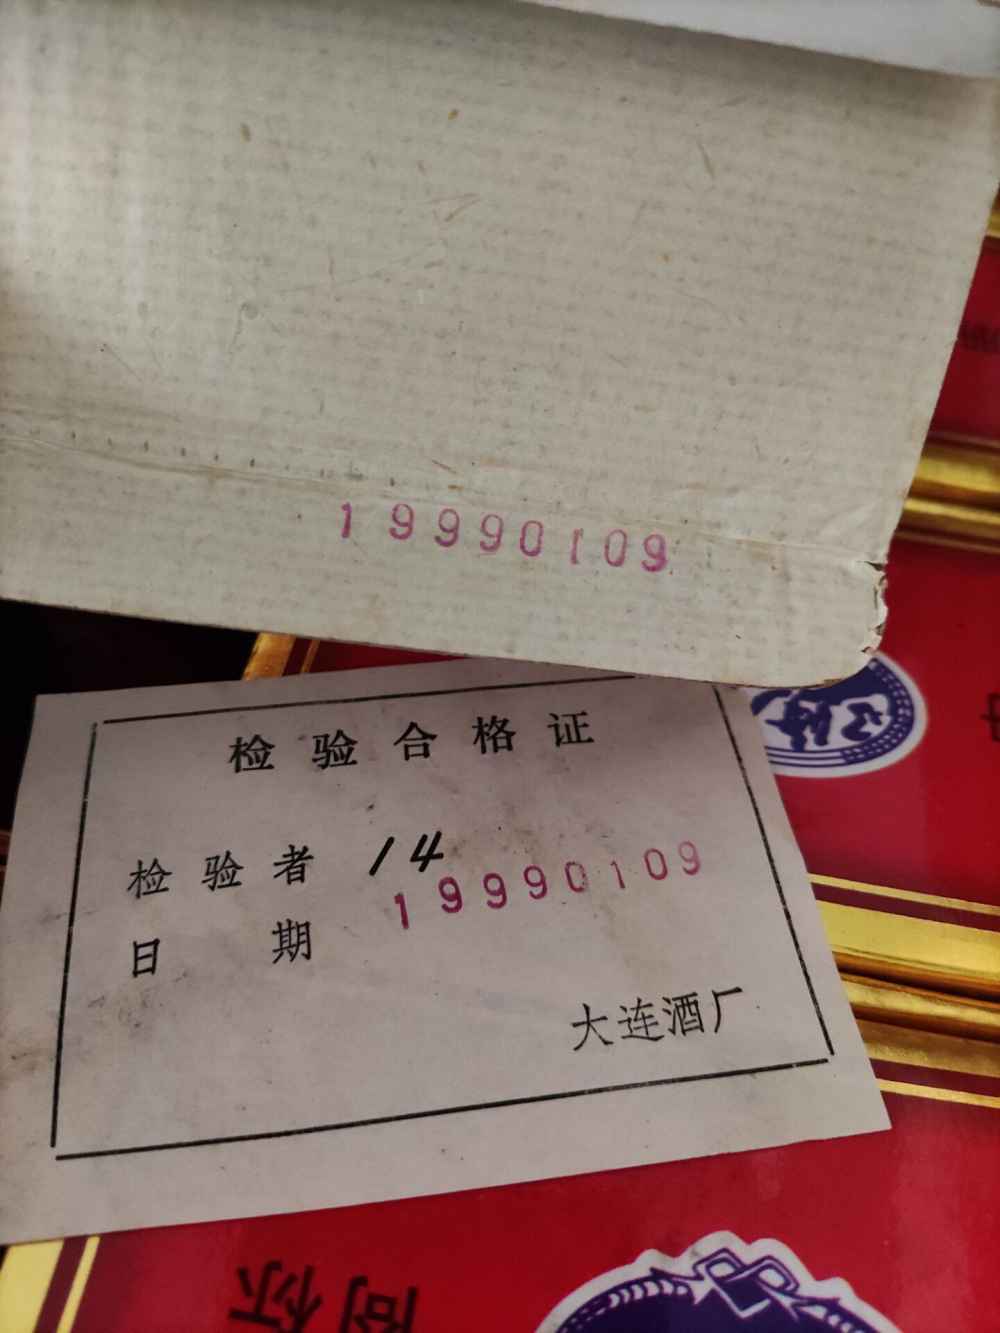 19990109
检验合格证
检验者 14
日期 19990109
大连酒厂
商标